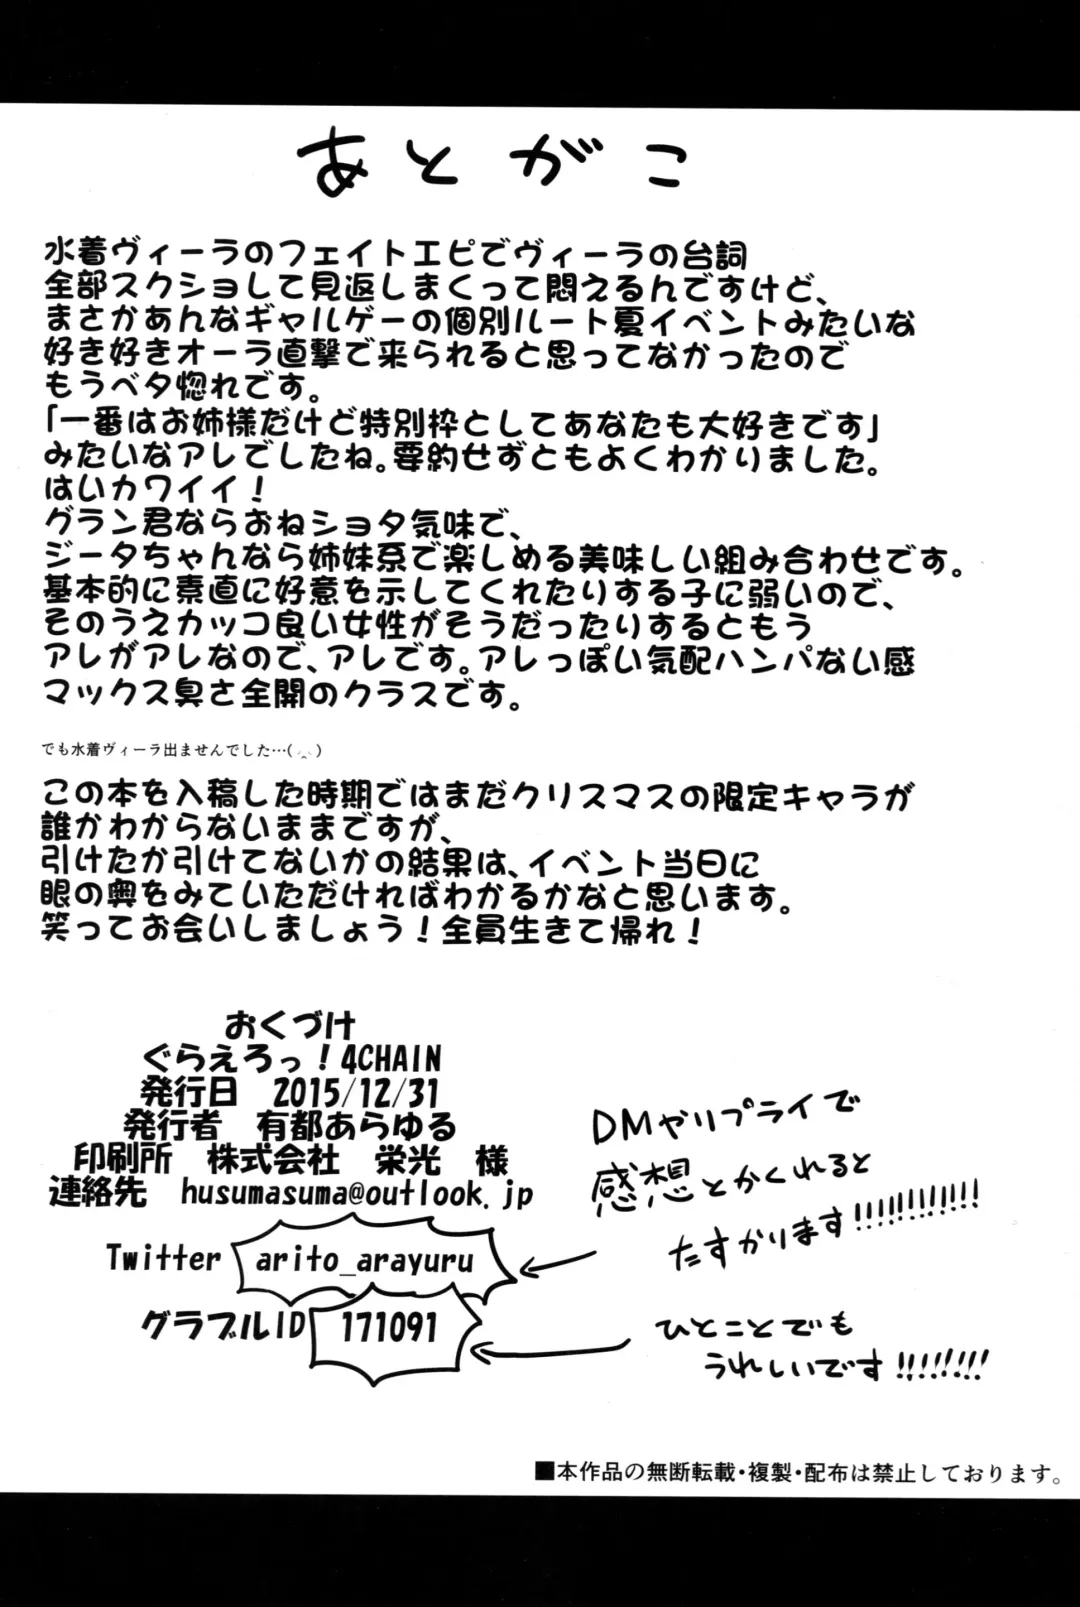 あとがこ
水着ヴィーラのフェイトエピでヴィーラの台詞
全部スクショして見返しまくって悶えるんですけど、
まさかあんなギャルゲーの個別ルート夏イベントみたいな
好き好きオーラ直撃で来られると思ってなかったので
もうベタ惚れです。
「一番はお姉様だけど特別枠としてあなたも大好きです」
みたいなアレでしたね。要約せずともよくわかりました。
はいカワイイ！
グラン君ならおねショタ気味で、
ジータちゃんなら姉妹系で楽しめる美味しい組み合わせです。
基本的に素直に好意を示してくれたりする子に弱いので、
そのうえカッコ良い女性がそうだったりするともう
アレがアレなので、アレです。アレっぽい気配ハンパない感
マックス臭さ全開のクラスです。
でも水着ヴィーラ出ませんでした…(
この本を入稿した時期ではまだクリスマスの限定キャラが
誰かわからないままですが、
引けたか引けてないかの結果は、イベント当日に
眼の奥をみていただければわかるかなと思います。
笑ってお会いしましょう！全員生きて帰れ！
おくづけ
ぐらえろっ！4CHAIN
発行日　2015/12/31
発行者　有都あらゆる
印刷所　株式会社　栄光　様
連絡先　husumasuma@outlook.jp
Twitter arito_arayuru
グラブルID 171091
DMやリプライで
感想とかくれると
たすかります!!!!!!!!!!!!
ひとことでも
うれしいです!!!!!!!!
■本作品の無断転載・複製・配布は禁止しております。